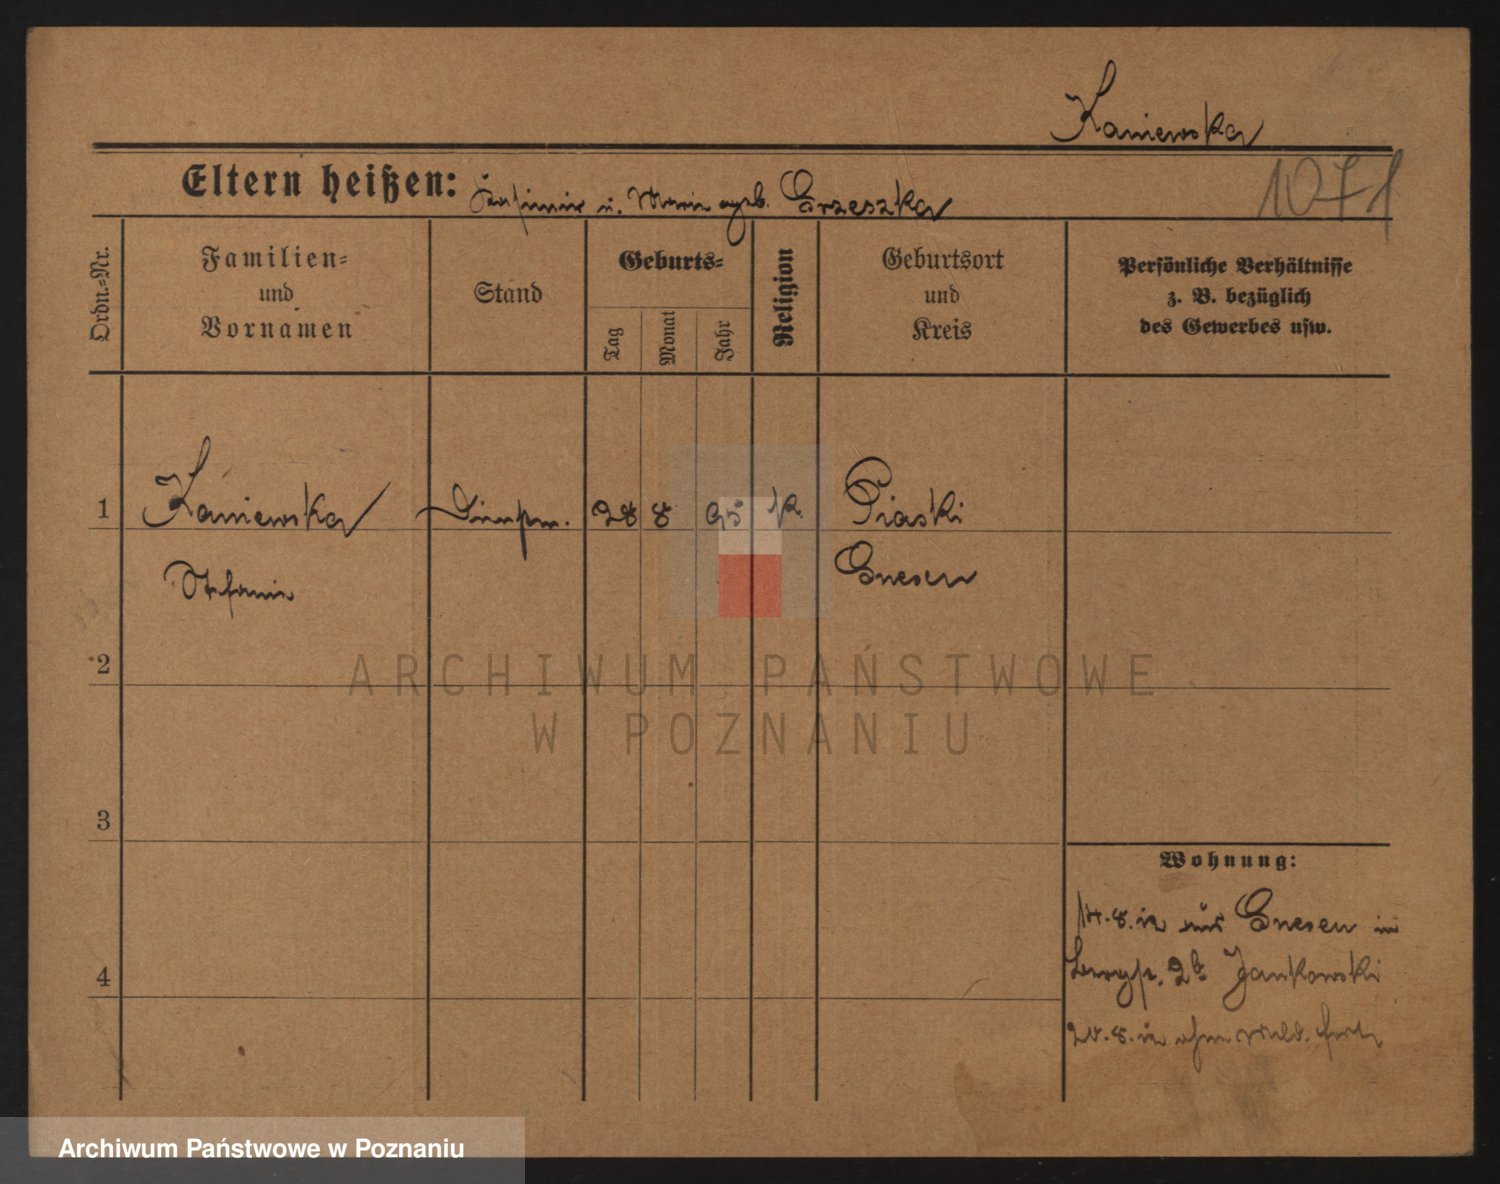 Kaniewska
1071
Eltern heißen: Kasimir u. Marie geb. Grzeszka
Ordn.-Nr.
Familien-
und
Vornamen
Stand
Geburts-
Tag
Monat
Jahr
Religion
Geburtsort
und
Kreis
Persönliche Verhältnisse
z. B. bezüglich
des Gewerbes usw.
1 Kaniewska 28 8 95 k. Piaski
Stefanie Gnesen
2
ARCHIWUM PAŃSTWOWE
W POZNANIU
3
Wohnung:
14.8.12 aus Gnesen in
2b Jankowski
4
20.8.12 ohne Meld. fort
Archiwum Państwowe w Poznaniu